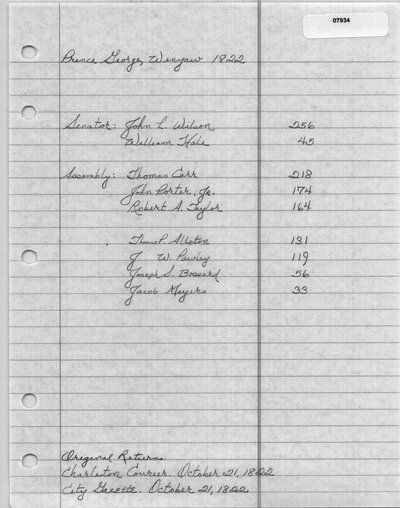 07934
Prince George, Winyaw 1822
Senator: John L. Wilson 256
William Hale 45
Assembly: Thomas Carr 218
John Porter, Jr. 174
Robert A. Taylor 164
Thomas P. Alston 131
J W. Pawley 119
Joseph S. Bossard 56
Jacob Meyers 33
Original Returns
Charleston Courier. October 21, 1822
City Gazette. October 21, 1822